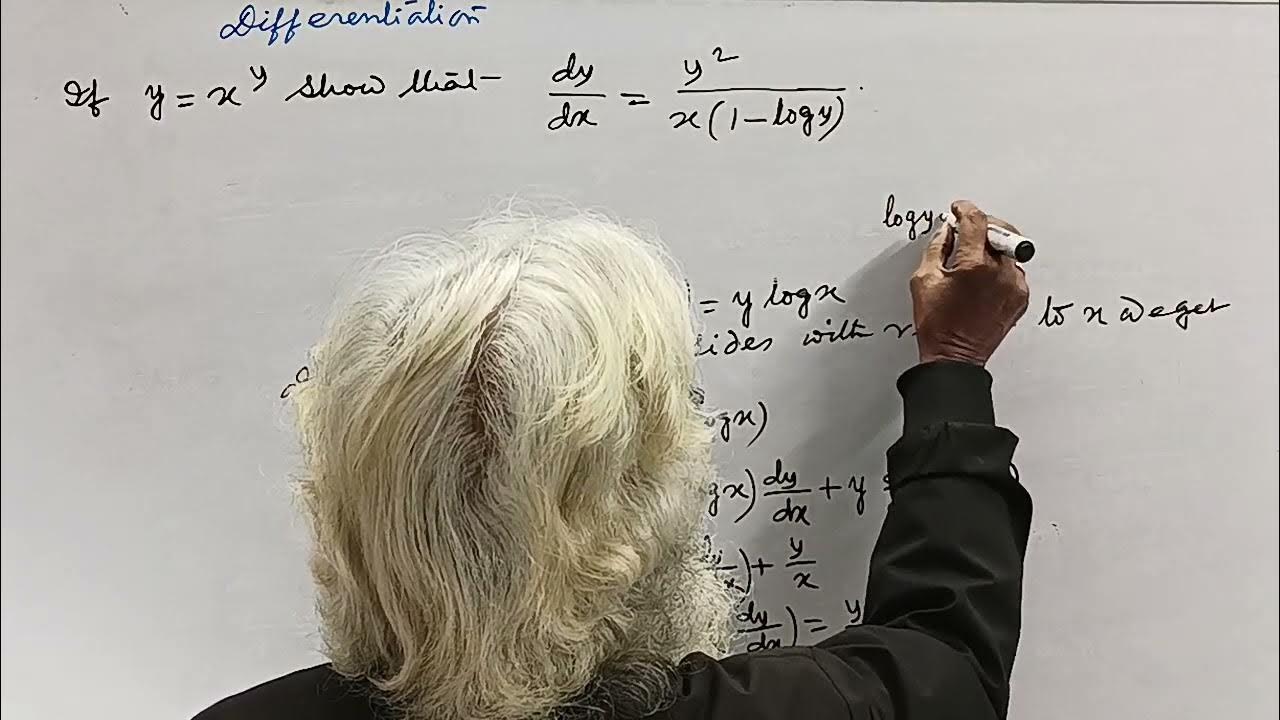 Differentiation
If y = x^y show that dy/dx = y^2/x(1-logy).
logy
= y logx
ides with to x we get
ogx)
gx) dy/dx + y
) + y/x
dy/dx) = y